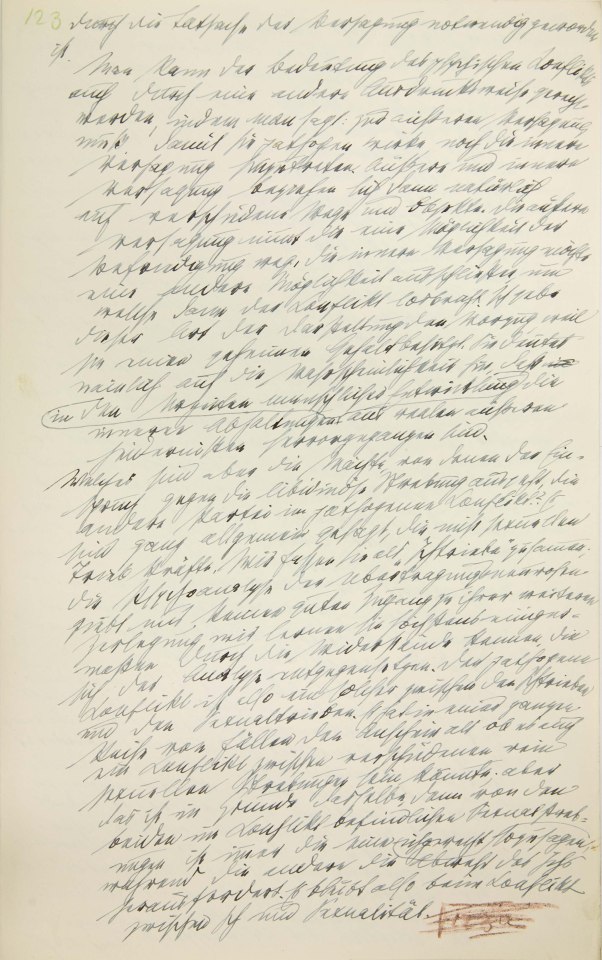 123
durch die Tatsache der Versagung notwendig geworden
ist.
Man kann der Bedeutung des psychischen Konflikts
auch durch eine andere Ausdrucksweise gerecht
werden, indem man sagt: zur äußeren Versagung
muß, damit sie pathogen wirke, noch die innere
Versagung hinzutreten. Äußere und innere
Versagung beziehen sich dann natürlich
auf verschiedene Wege und Objekte. Die äußere
Versagung nimmt die eine Möglichkeit der
Befriedigung weg, die innere Versagung möchte
eine andere Möglichkeit ausschließen, um
welche dann der Konflikt losbricht. Ich gebe
dieser Art der Darstellung den Vorzug, weil
sie einen geheimen Gehalt besitzt. Sie deutet
nämlich auf die Wahrscheinlichkeit hin, daß
in den Urzeiten menschlicher Entwicklung die
inneren Abhaltungen aus realen äußeren
Hindernissen hervorgegangen sind.
Welches sind aber die Mächte, von denen der Ein-
spruch gegen die libidinöse Strebung ausgeht, die
andere Partei im pathogenen Konflikt? Es
sind ganz allgemein gesagt, die nicht sexuellen
Triebkräfte. Wir fassen sie als "Ichtriebe" zusammen.
Die Psychoanalyse der Übertragungsneurosen
giebt uns keinen guten Zugang zu ihrer weiteren
Zerlegung, wir lernen sie höchstens einiger-
maßen durch die Widerstände kennen, die
sich der Analyse entgegensetzen. Der pathogene
Konflikt ist also ein solcher zwischen den Ichtrieben
und den Sexualtrieben. Es hat in einer ganzen
Reihe von Fällen den Anschein, als ob es auch
ein Konflikt zwischen verschiedenen rein
sexuellen Strebungen sein könnte. aber
das ist im Grunde dasselbe, denn von den
beiden im Konflikt befindlichen Sexualstreb-
ungen ist immer die eine ichgerecht sozusagen,
während die andere die Abwehr des Ichs
herausfordert. Es bleibt also beim Konflikt
zwischen Ich und Sexualität.